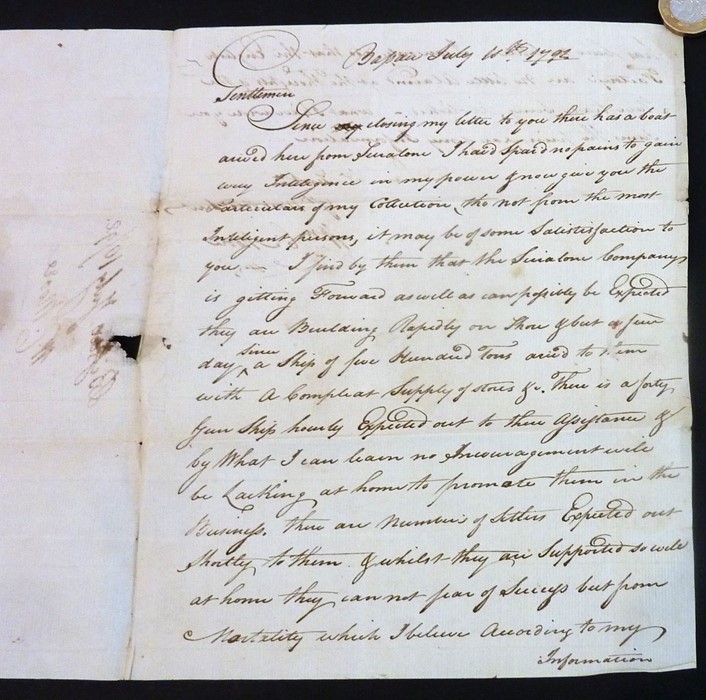 Bassau July 11th 1792
Gentlemen
Since my closing my letter to you there has a boat
arived here from Searalone I haid Spaird no pains to gain
every Inteligence in my power & now give you the
Particulars of my Collection, tho not from the most
Inteligent persons, it may be of some Satisfaction to
you I find by them that the Seiralone Company
is gitting Forward as well as can possibly be Expected
they are Building Rapidly on Shore & but a few
day since a Ship of five Hundred Tons arived to them
with A Compleat Supply of stores &c. There is a forty
Gun Ship hourly Expected out to there Assistance &
by What I can learn no Incouragement will
be Lacking at home to promote them in the
Business. there are Number of Setlers Expected out
Shortly to them & whilst they are Supported so well
at home they can not fear of Success but from
Mortality which I believe According to my
Information